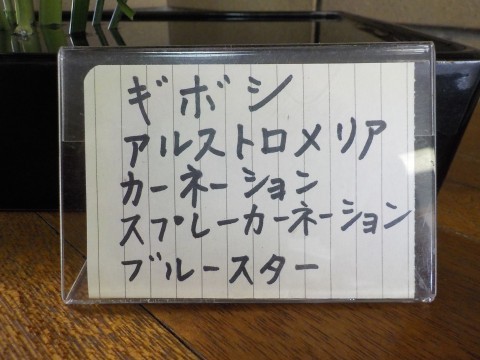 ギボシ
アルストロメリア
カーネーション
スプレーカーネーション
ブルースター